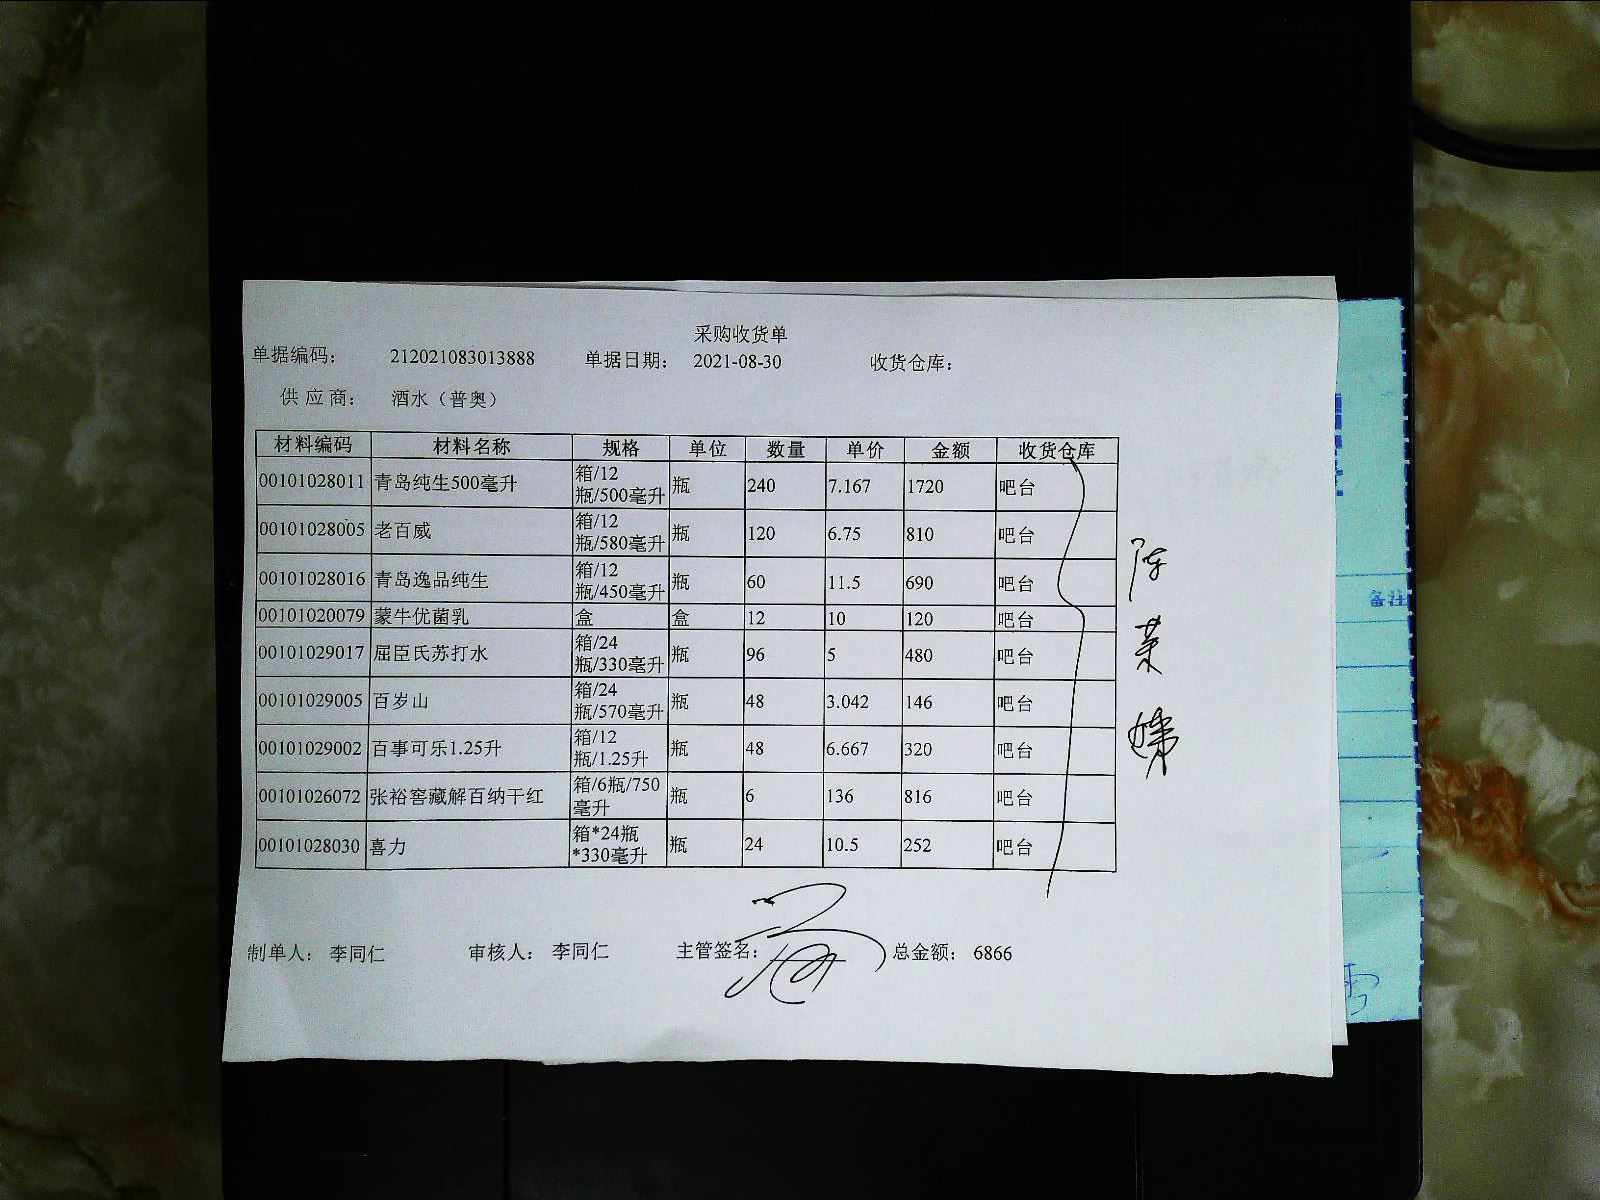 采购收货单
单据编码： 212021083013888 单据日期： 2021-08-30 收货仓库：
供应商： 酒水（普奥）
材料编码 材料名称 规格 单位 数量 单价 金额 收货仓库
00101028011 青岛纯生500毫升 箱/12瓶/500毫升 瓶 240 7.167 1720 吧台
00101028005 老百威 箱/12瓶/580毫升 瓶 120 6.75 810 吧台
00101028016 青岛逸品纯生 箱/12瓶/450毫升 瓶 60 11.5 690 吧台
00101020079 蒙牛优菌乳 盒 盒 12 10 120 吧台
00101029017 屈臣氏苏打水 箱/24瓶/330毫升 瓶 96 5 480 吧台
00101029005 百岁山 箱/24瓶/570毫升 瓶 48 3.042 146 吧台
00101029002 百事可乐1.25升 箱/12瓶/1.25升 瓶 48 6.667 320 吧台
00101026072 张裕窖藏解百纳干红 箱/6瓶/750毫升 瓶 6 136 816 吧台
00101028030 喜力 箱*24瓶*330毫升 瓶 24 10.5 252 吧台
制单人： 李同仁 审核人： 李同仁 主管签名： 总金额： 6866
备注